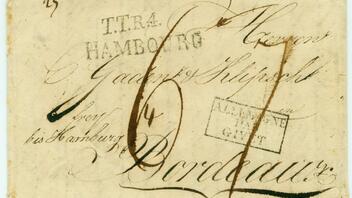 T.T.R.4.
HAMBOURG
Herren
Gaden & Klipsch
in
4
frey
bis Hamburg
ALLEMAGNE
PAR
GIVET
Bordeaux